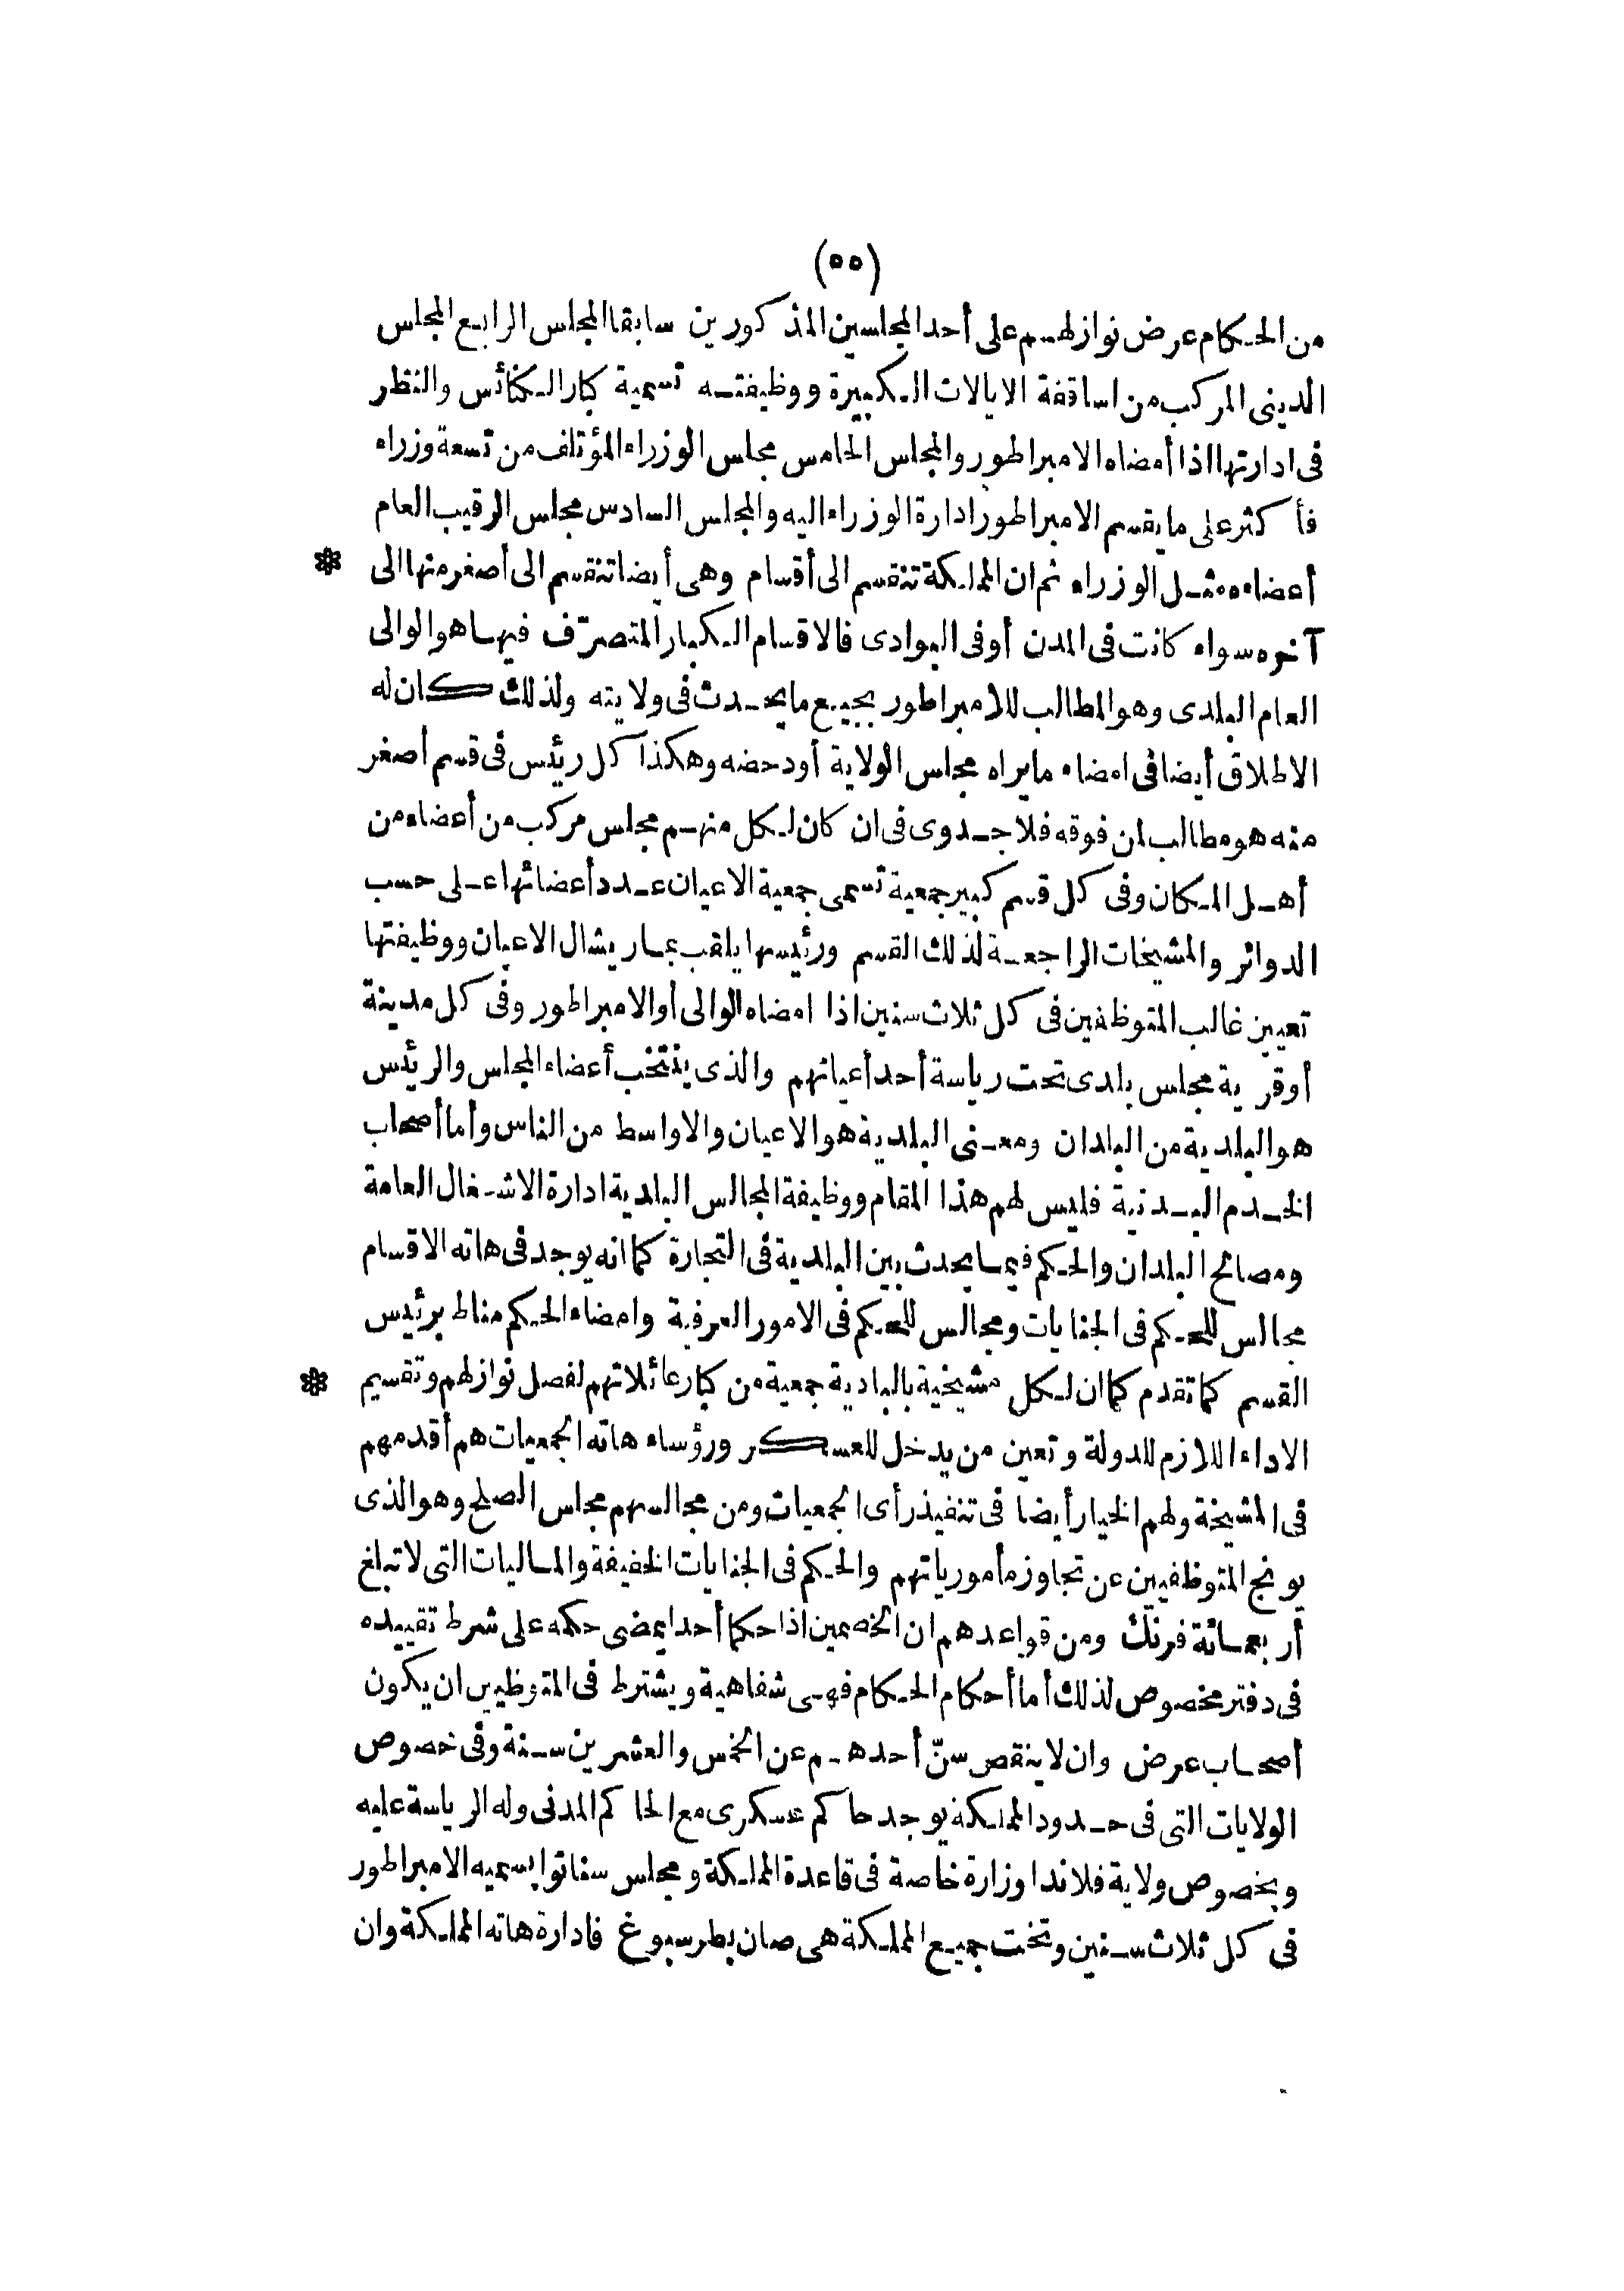 (٥٥)
من الحكام عرض نوازلهم على أحد المجلسين المذكورين سابقا المجلس الرابع المجلس
الدينى المركب من اساقفة الايالات الكبيرة ووظيفته تسمية كبار الكنائس والنظر
فى ادارتها اذا أمضاه الامبراطور والمجلس الخامس مجلس الوزراء المؤتلف من تسعة وزراء
فأكثر على ما يقسم الامبراطور ادارة الوزراء اليه والمجلس السادس مجلس الرقيب العام
أعضاءه مثل الوزراء ثم ان المملكة تنقسم الى أقسام وهى أيضا تنقسم الى أصغر منها الى *
آخره سواء كانت فى المدن أوفى البوادى فالاقسام الكبار المتصرّف فيها هو الوالى
العام البلدى وهو المطالب للامبراطور بجميع ما يحدث فى ولايته ولذلك كان له
الاطلاق أيضا فى امضاء مايراه مجلس الولاية أودحضه وهكذا كل رئيس فى قسم أصغر
منه هو مطالب لمن فوقه فلا جدوى فى ان كان لكل منهم مجلس مركب من أعضاء من
أهل المكان وفى كل قسم كبير جمعية تسمى جمعية الاعيان عدد أعضائها على حسب
الدوائر والمشيخات الراجعة لذلك القسم ورئيسها يلقب بماريشال الاعيان ووظيفتها
تعيين غالب المتوظفين فى كل ثلاث سنين اذا امضاه الوالى أوالامبراطور وفى كل مدينة
أوقرية مجلس بلدى تحت رياسة أحد أعيانهم والذى ينتخب أعضاء المجلس والرئيس
هو البلدية من البلدان ومعنى البلدية هو الاعيان والاواسط من الناس وأما أصحاب
الخدم البدنية فليس لهم هذا المقام ووظيفة المجالس البلدية ادارة الاشغال العامة
ومصالح البلدان والحكم فيما يحدث بين البلدية فى التجارة كما انه يوجد فى هاته الاقسام
مجالس للحكم فى الجنايات ومجالس للحكم فى الامور العرفية وامضاء الحكم مناط برئيس
القسم كما تقدم كما ان لكل مشيخية بالبادية جمعية من كبار عائلاتهم لفصل نوازلهم وتقسيم *
الاداء اللازم للدولة وتعين من يدخل للعسكر ورؤساء هاته الجمعيات هم أقدمهم
فى المشيخة ولهم الخيار أيضا فى تنفيذ رأى الجمعيات ومن مجالسهم مجلس الصلح وهو الذى
يوبخ المتوظفيين عن تجاوز مأمورياتهم والحكم فى الجنايات الخفيفة والماليات التى لا تبلغ
أربعمائة فرنك ومن قواعدهم ان الخصمين اذا حكما أحدا يمضى حكمه على شرط تقييده
فى دفتر مخصوص لذلك أما أحكام الحكام فهى شفاهية ويشترط فى المتوظيين ان يكون
أصحاب عرض وان لا ينقص سنّ أحدهم عن الخمس والعشرين سنة وفى خصوص
الولايات التى فى حدود المملكة يوجد حاكم عسكرى مع الحاكم المدنى وله الرياسة عليه
وبخصوص ولاية فلاندا وزارة خاصة فى قاعدة المملكة ومجلس سناتوا يسميه الامبراطور
فى كل ثلاث سنين وتخت جميع المملكة هى صان بطرسبوغ فادارة هاته المملكة وان